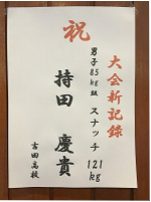 祝
大会新記録
男子85kg級 スナッチ 121kg
持田 慶貴
吉田高校